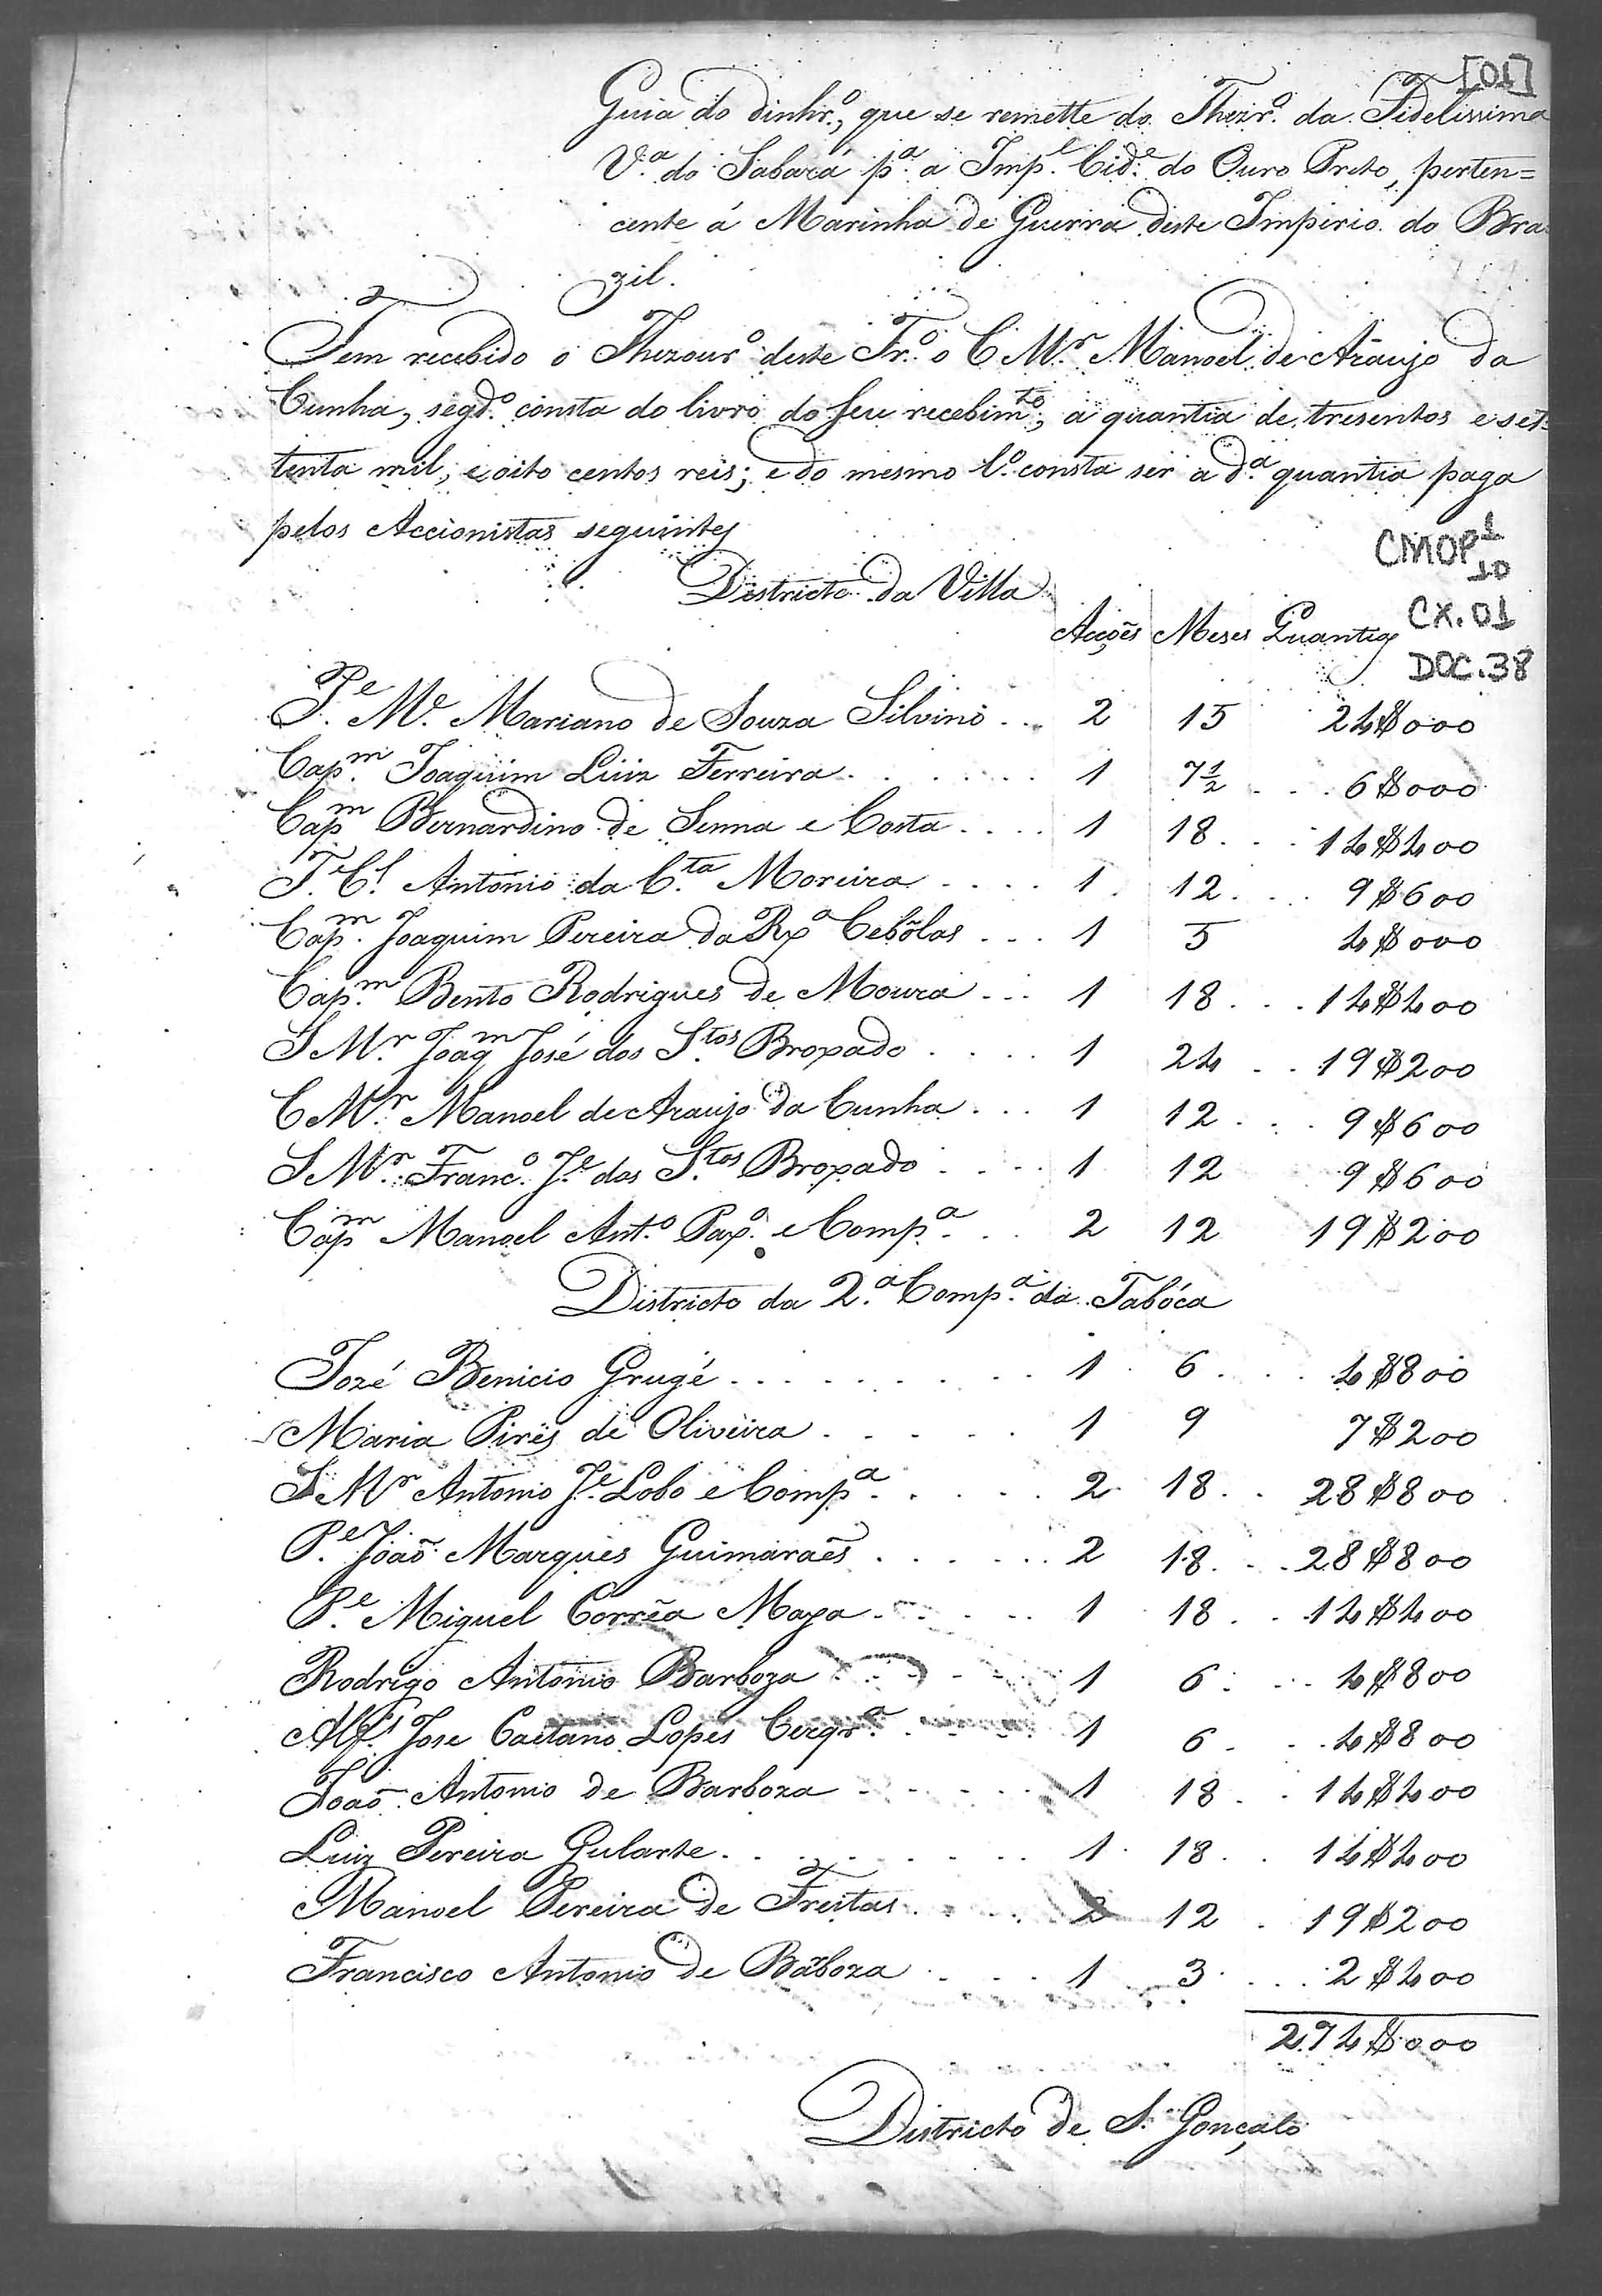 [01]
Guia do dinhr.º, que se remette do Thezr.º da Fidelissima
V.ª do Sabará p.ª a Imp.l Cid.e do Ouro Preto, perten=
cente á Marinha de Guerra deste Imperio do Bra
zil.
Tem recebido o Thezour.º deste Tr.º o C. M.r Manoel de Araujo da
Cunha, segd.º consta do livro do seu recebim.to, a quantia de tresentos e set-
tenta mil, e oito centos reis; e do mesmo l.º consta ser a d.ª quantia paga
pelos Accionistas seguintes
CMOP 1
10
Districto da Villa
CX.01
Acçoẽs Meses Quantias
DOC.38
P.e M.e Mariano de Souza Silvino . . 2 15 24$000
Cap.m Joaquim Luiz Ferreira . . . . . . 1 7½ . . . 6$000
Cap.m Bernardino de Senna e Costa . . . . 1 18 . . . 14$400
T.e C.l Antonio da C.ta Moreira . . . . 1 12 . . . 9$600
Cap.m Joaquim Pereira da Rx.ª Cebõlas . . . 1 5 4$000
Cap.m Bento Rodrigues de Moura . . . 1 18 . . . 14$400
S. M.r Joaq.m José dos S.tos Broxado . . . . 1 24 . . 19$200
C. M.r Manoel de Araujo da Cunha . . . 1 12 . . . 9$600
S. M.r Franc.º J.e dos S.tos Broxado . . . . 1 12 9$600
Cap.m Manoel Ant.º Pax.º e Comp.ª . . 2 12 19$200
Districto da 2.ª Comp.ª da Tabóca
Jozé Benicio Grugé . . . . . . . . . 1 6 . . . 4$800
Maria Pires de Oliveira . . . . . 1 9 7$200
S. M.r Antonio J.e Lobo e Comp.ª . . . . . 2 18 . . 28$800
P.e Joaõ Marques Guimaraẽs . . . . . . 2 18 . . . 28$800
P.e Miguel Corrêa Maya . . . . . 1 18 . . 14$400
Rodrigo Antonio Barboza . . . . . . 1 6 . . . 4$800
Alf.s Jose Caetano Lopes Cerqr.ª . . . . . 1 6 . . . 4$800
Joaõ Antonio de Barboza . . . . . . 1 18 . . 14$400
Luiz Pereira Gularte . . . . . . . . 1 18 . . 14$400
Manoel Pereira de Freitas . . . . 2 12 . 19$200
Francisco Antonio de Bãboza . . . 1 3 . . . 2$400
274$000
Districto de S. Gonçalo